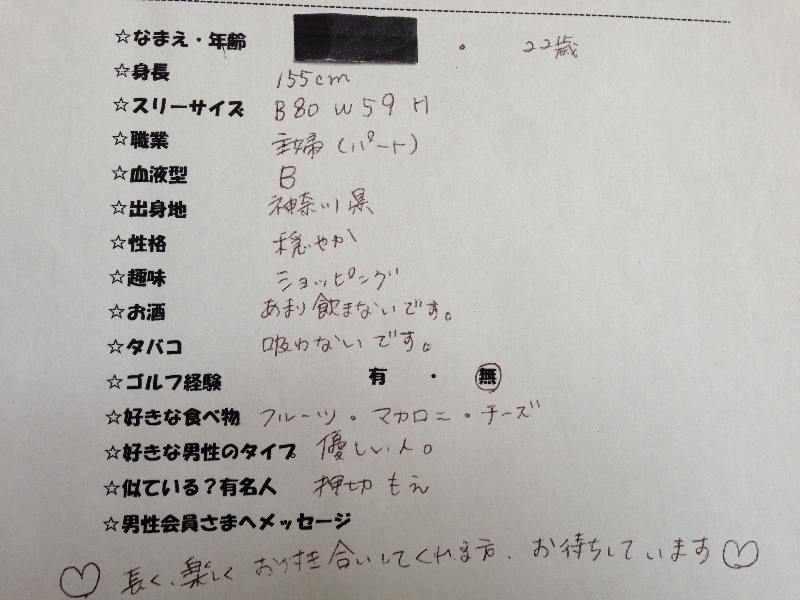 ☆なまえ・年齢 ・ 22歳
☆身長 155cm
☆スリーサイズ B80 W59 H
☆職業 主婦(パート)
☆血液型 B
☆出身地 神奈川県
☆性格 穏やか
☆趣味 ショッピング
☆お酒 あまり飲まないです。
☆タバコ 吸わないです。
☆ゴルフ経験 有 ・ 無
☆好きな食べ物 フルーツ・マカロニ・チーズ
☆好きな男性のタイプ 優しい人。
☆似ている?有名人 押切もえ
☆男性会員さまへメッセージ
♡長く、楽しくお付き合いしてくれる方、お待ちしています♡